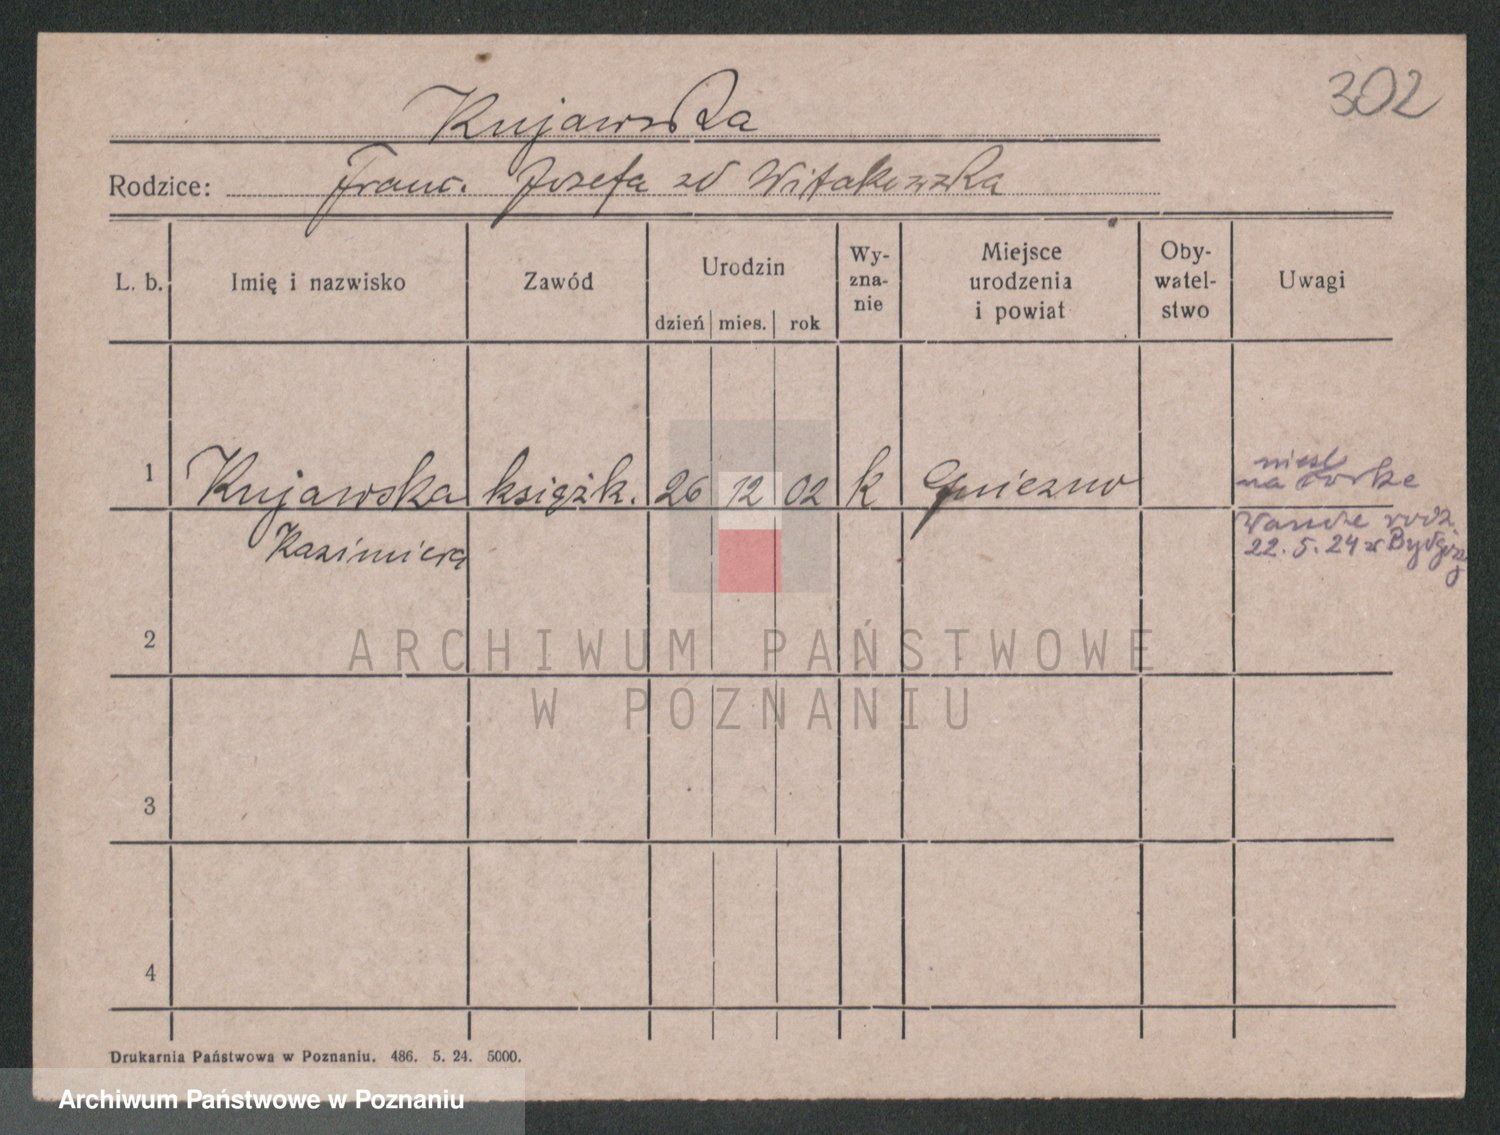 302
Kujawska
Rodzice: Franc. Jozefa zd Witakowska
L. b. Imię i nazwisko Zawód Urodzin Wy-zna-nie Miejsce urodzenia i powiat Oby-watel-stwo Uwagi
dzień mies. rok
1 Kujawska książk. 26 12 02 k Gniezno
Kazimiera
na córke
Wande rodz.
22. 5. 24 w
2
3
4
ARCHIWUM PAŃSTWOWE
W POZNANIU
Drukarnia Państwowa w Poznaniu. 486. 5. 24. 5000.
Archiwum Państwowe w Poznaniu